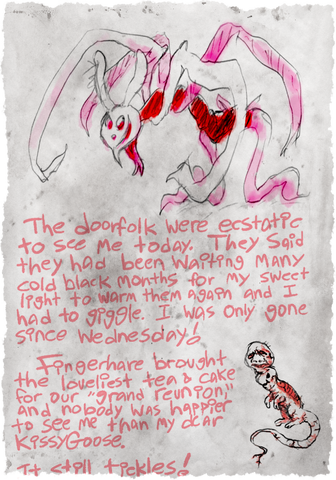 The doorfolk were ecstatic
to see me today. They said
they had been waiting many
cold black months for my sweet
light to warm them again and I
had to giggle. I was only gone
since Wednesday!
Fingerhare brought
the loveliest tea & cake
for our "grand reunion"
and nobody was happier
to see me than my dear
KissyGoose.
It still tickles!